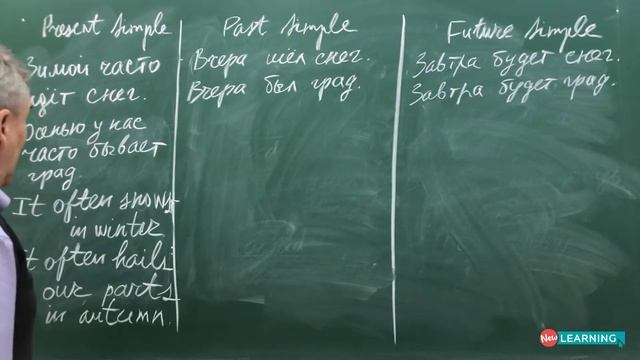 Present Simple
Зимой часто
идёт снег.
Осенью у нас
часто бывает
град.
It often snows
in winter
It often hails
our parts
in autumn.
Past Simple
Вчера шёл снег.
Вчера был град.
Future Simple
Завтра будет снег.
Завтра будет град.
New LEARNING